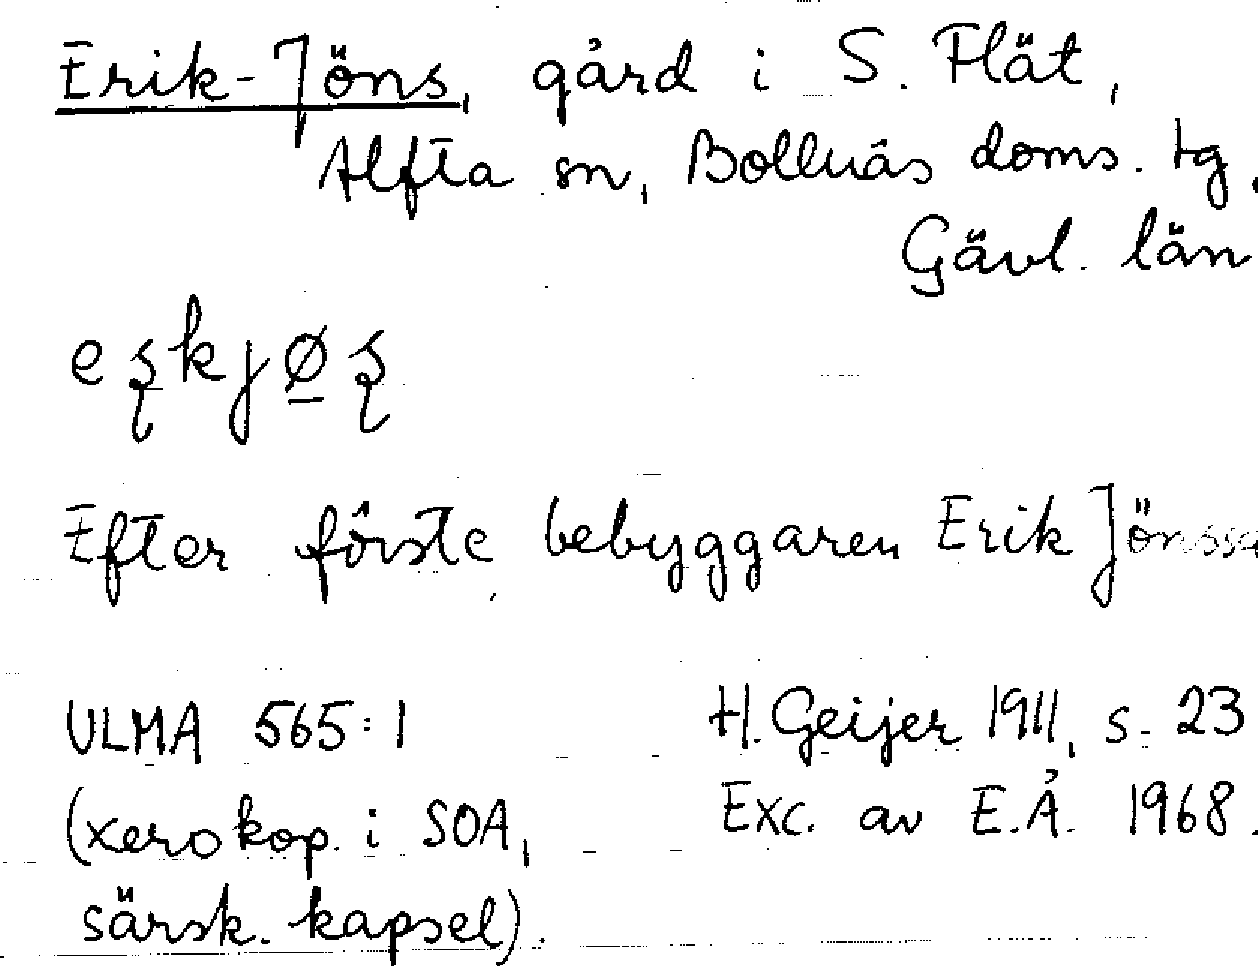 Erik-Jöns, gård i S. Flät,
Alfta sn, Bollnäs doms. tg,
Gävl. län
Efter förste bebyggaren Erik Jönsso
ULMA 565:1
(xerokop. i SOA,
särsk. kapsel).
H. Geijer 1911, s. 23
Exc. av E.Å. 1968.